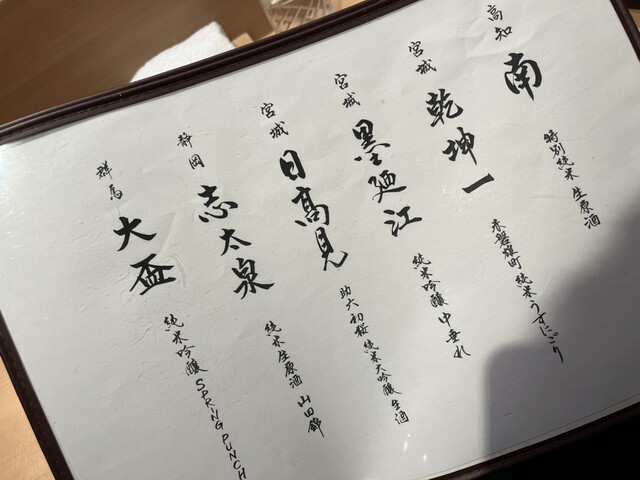 高知 南 特別純米 生原酒
宮城 乾坤一 赤磐雄町 純米うすにごり
宮城 墨廼江 純米吟醸 中垂れ
宮城 日高見 助六初桜 純米大吟醸 生酒
静岡 志太泉 純米生原酒 山田錦
群馬 大盃 純米吟醸 SPRING PUNCH